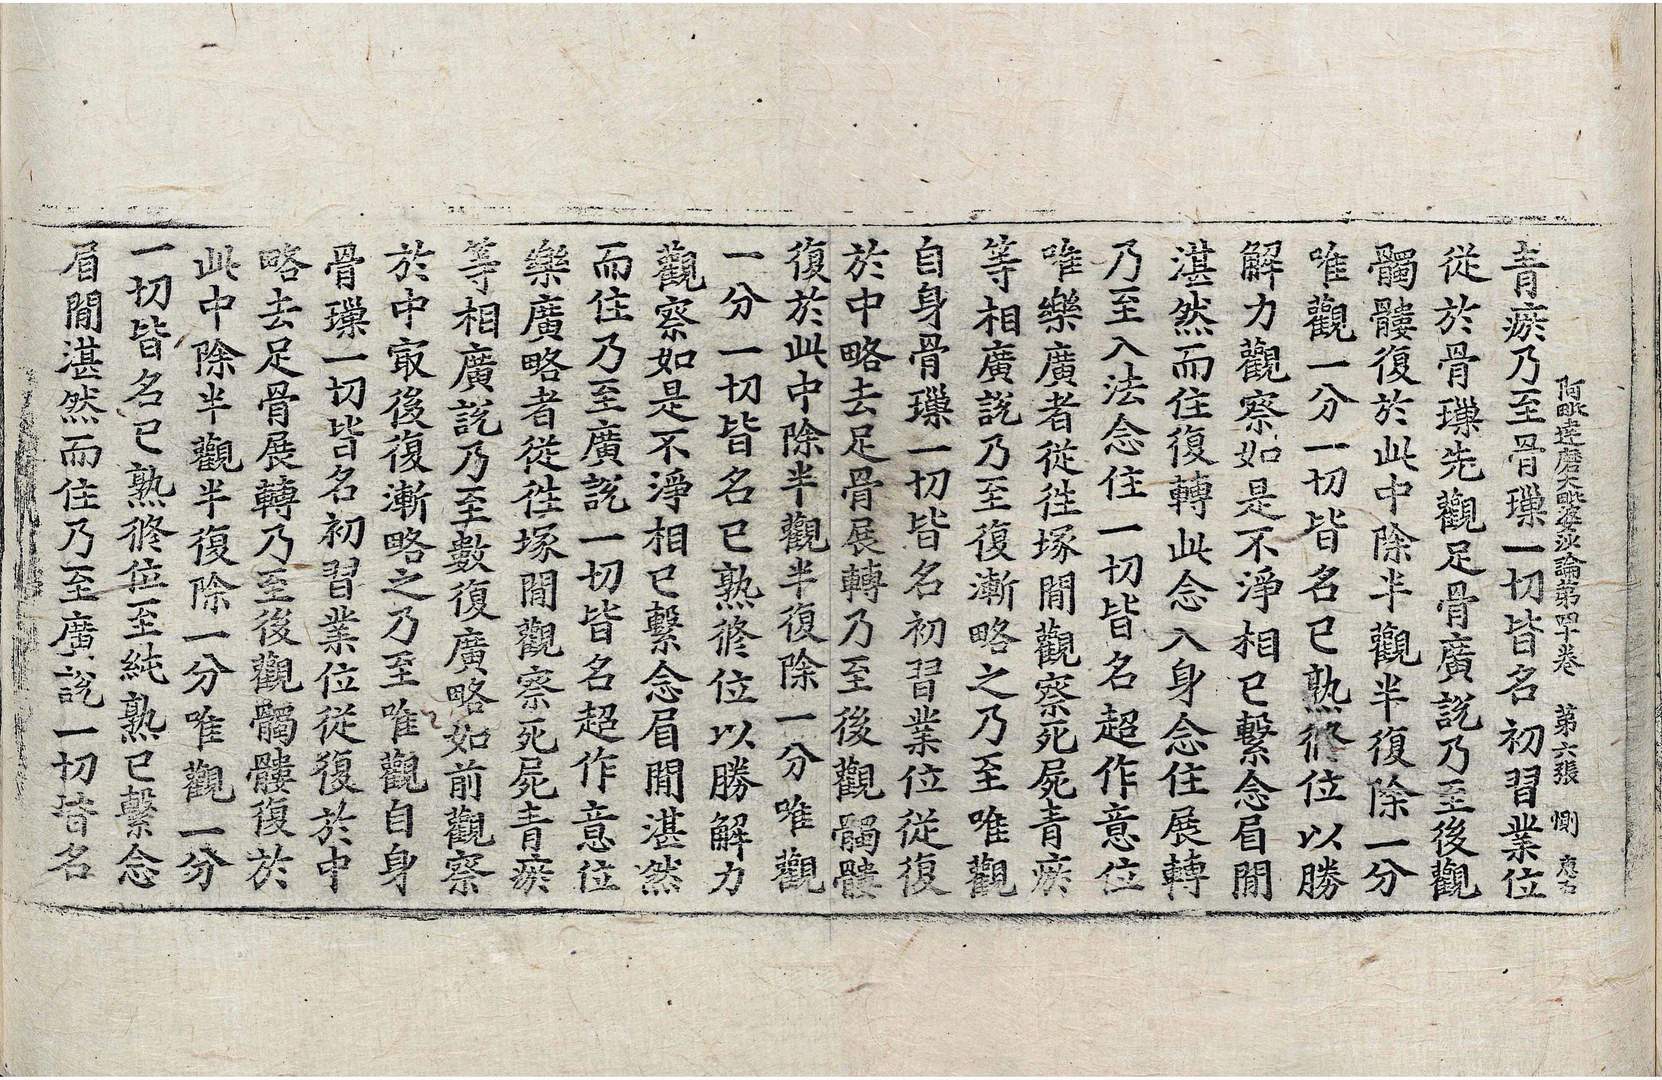 阿毗達磨大毗婆沙論第四十卷　第六張　惻
青瘀乃至骨璅一切皆名初習業位
從於骨璅先觀足骨廣說乃至後觀
髑髏復於此中除半觀半復除一分
唯觀一分一切皆名已熟修位以勝
解力觀察如是不淨相已繫念眉閒
湛然而住復轉此念入身念住展轉
乃至入法念住一切皆名超作意位
唯樂廣者從往塚閒觀察死屍青瘀
等相廣說乃至復漸略之乃至唯觀
自身骨璅一切皆名初習業位從復
於中略去足骨展轉乃至後觀髑髏
復於此中除半觀半復除一分唯觀
一分一切皆名已熟修位以勝解力
觀察如是不淨相已繫念眉閒湛然
而住乃至廣說一切皆名超作意位
樂廣略者從往塚閒觀察死屍青瘀
等相廣說乃至數復廣略如前觀察
於中冣後復漸略之乃至唯觀自身
骨璅一切皆名初習業位從復於中
略去足骨展轉乃至後觀髑髏復於
此中除半觀半復除一分唯觀一分
一切皆名已熟修位至純熟已繫念
眉閒湛然而住乃至廣說一切皆名